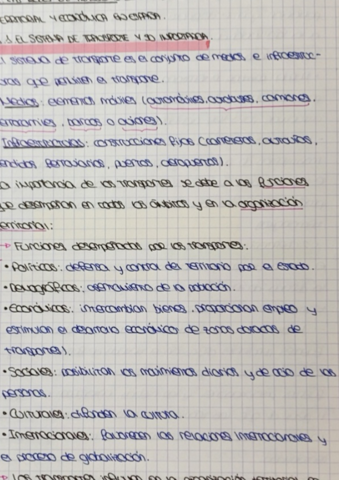 TERRITORIAL Y ECONÓMICA EN ESPAÑA.
1. EL SISTEMA DE TRANSPORTE Y SU IMPORTANCIA.
El sistema de transporte es el conjunto de medios e infraestruc-
turas que permiten el transporte.
Medios: elementos móviles (automóviles, autobuses, camiones,
ferrocarriles, barcos o aviones).
Infraestructuras: construcciones fijas (carreteras, autovías,
tendidos ferroviarios, puertos, aeropuertos).
La importancia de los transportes se debe a las funciones
que desempeñan en todos los ámbitos y en la organización
territorial:
→ Funciones desempeñadas por los transportes:
• Políticas: defensa y control del territorio por el estado.
• Demográficas: asentamiento de la población.
• Económicas: intercambian bienes, proporcionan empleo y
estimulan el desarrollo económico de zonas dotadas de
transportes).
• Sociales: posibilitan los movimientos diarios y de ocio de las
personas.
• Culturales: difunden la cultura.
• Internacionales: favorecen las relaciones internacionales y
el proceso de globalización.
→ Los transportes influyen en la organización territorial en